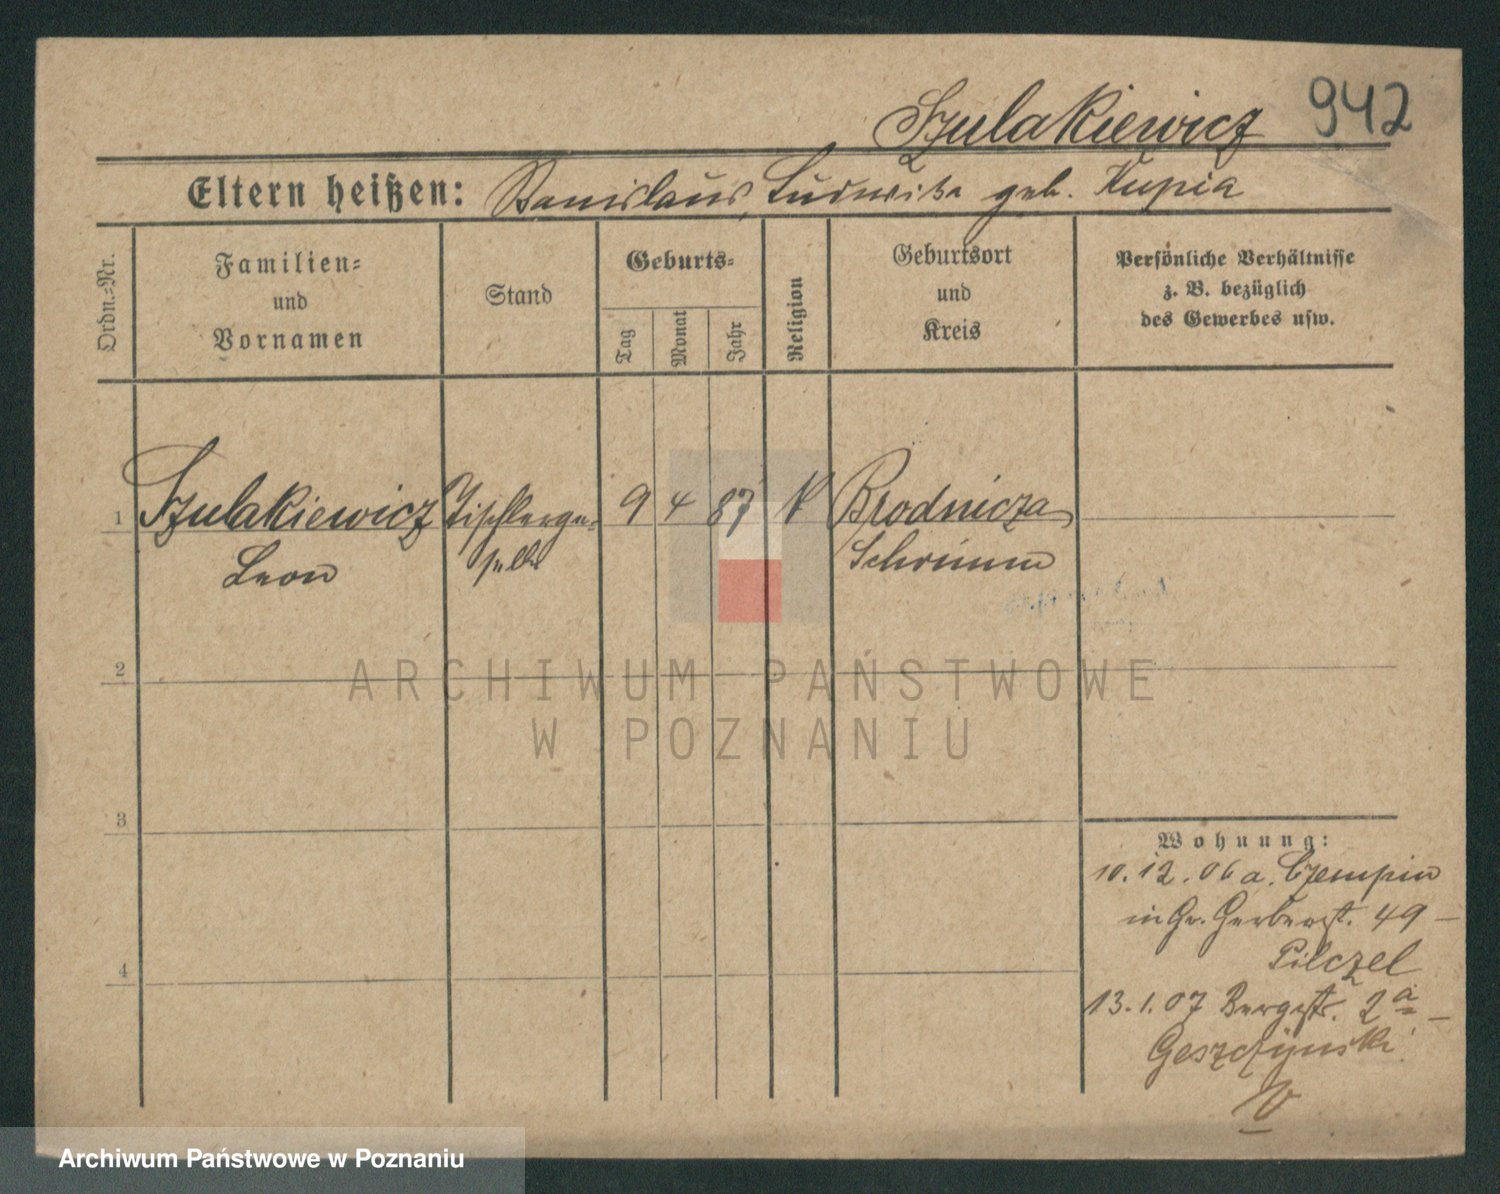 Szulakiewicz 942
Eltern heißen: Stanislaus, Ludwika geb. Kupia
Ordn.-Nr.
Familien-
und
Vornamen
Stand
Geburts-
Tag
Monat
Jahr
Religion
Geburtsort
und
Kreis
Persönliche Verhältnisse
z. B. bezüglich
des Gewerbes usw.
1 Szulakiewicz Tischlerge- 9 4 87 K Brodnicza
Leon selle Schrimm
2
3
4
Wohnung:
10.12.06 a. Czempin
in Gr. Gerberst. 49 -
Pilczel
13.1.07 Bergstr. 2a -
Geszczynski
ARCHIWUM PAŃSTWOWE
W POZNANIU
Archiwum Państwowe w Poznaniu